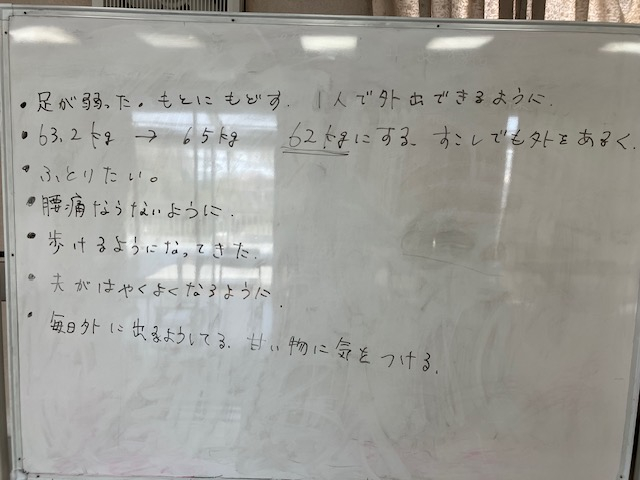 ・足が弱った。もとにもどす。1人で外出できるように。
・63.2kg → 65kg 62kgにする。すこしでも外をあるく。
・ふとりたい。
・腰痛ならないように。
・歩けるようになってきた。
・夫がはやくよくなるように。
・毎日外に出るようしてる。甘い物に気をつける。